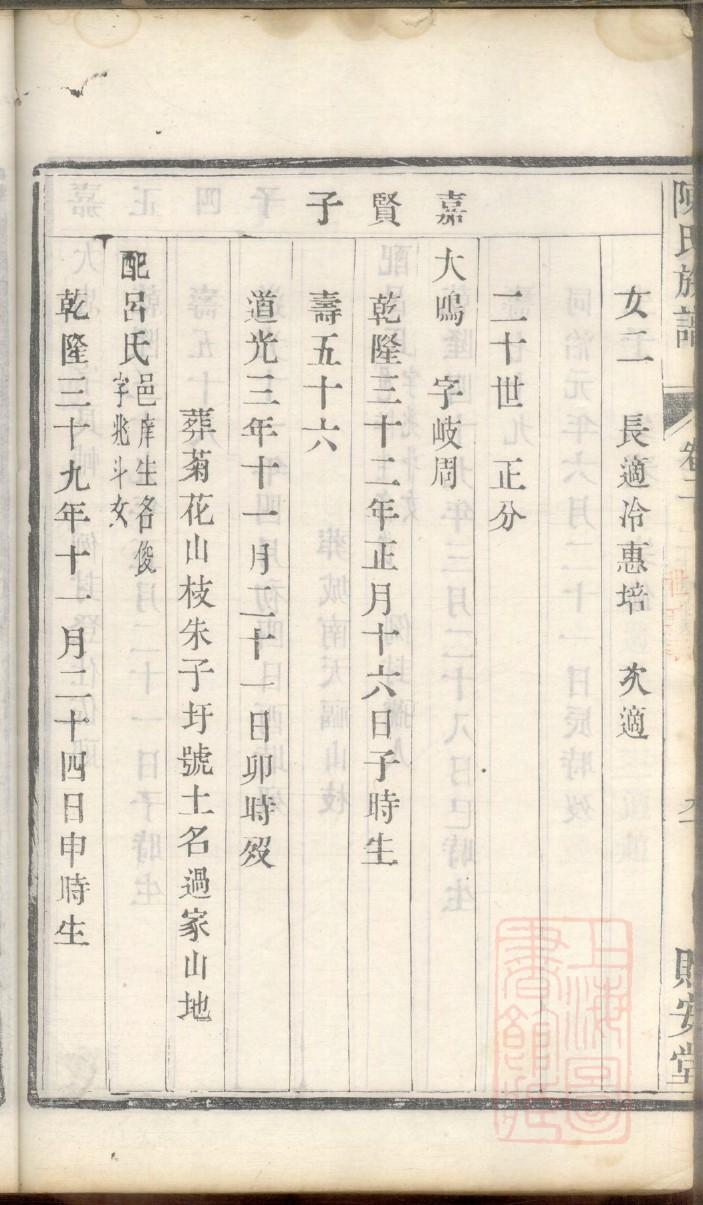 陳氏族譜
卷二
貽安堂
女二　長適冷惠培　次適
二十世　正分
嘉賢子
大鳴　字岐周
乾隆三十二年正月十六日子時生
壽五十六
道光三年十一月二十一日卯時歿
葬菊花山枝朱子圩號土名過家山地
配呂氏邑庠生名俊
字兆斗女
乾隆三十九年十一月二十四日申時生
上海圖
書館藏